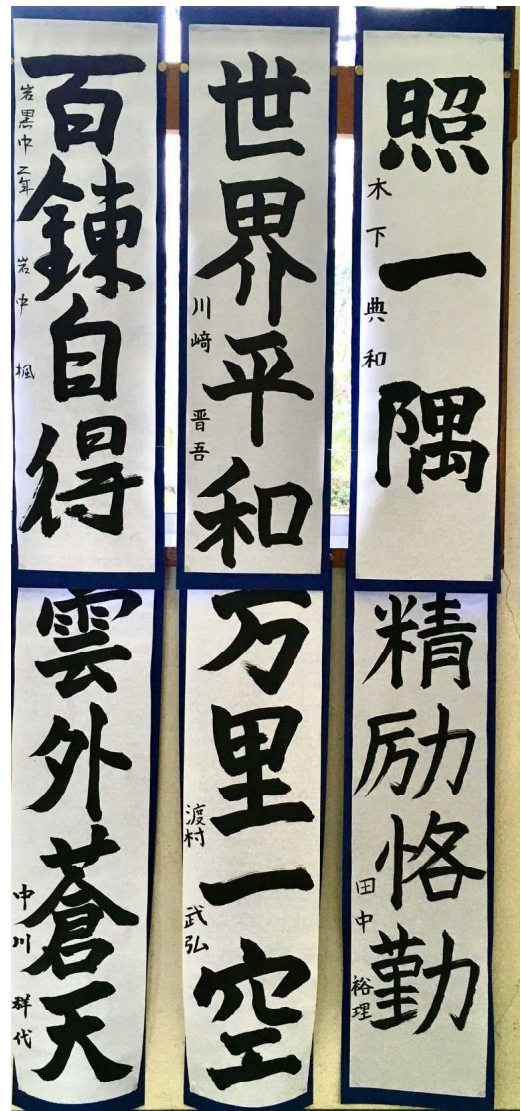 照一隅
木下典和
世界平和
川﨑晋吾
百錬自得
岩黒中二年 岩中楓
精励恪勤
田中裕理
万里一空
渡村武弘
雲外蒼天
中川群代